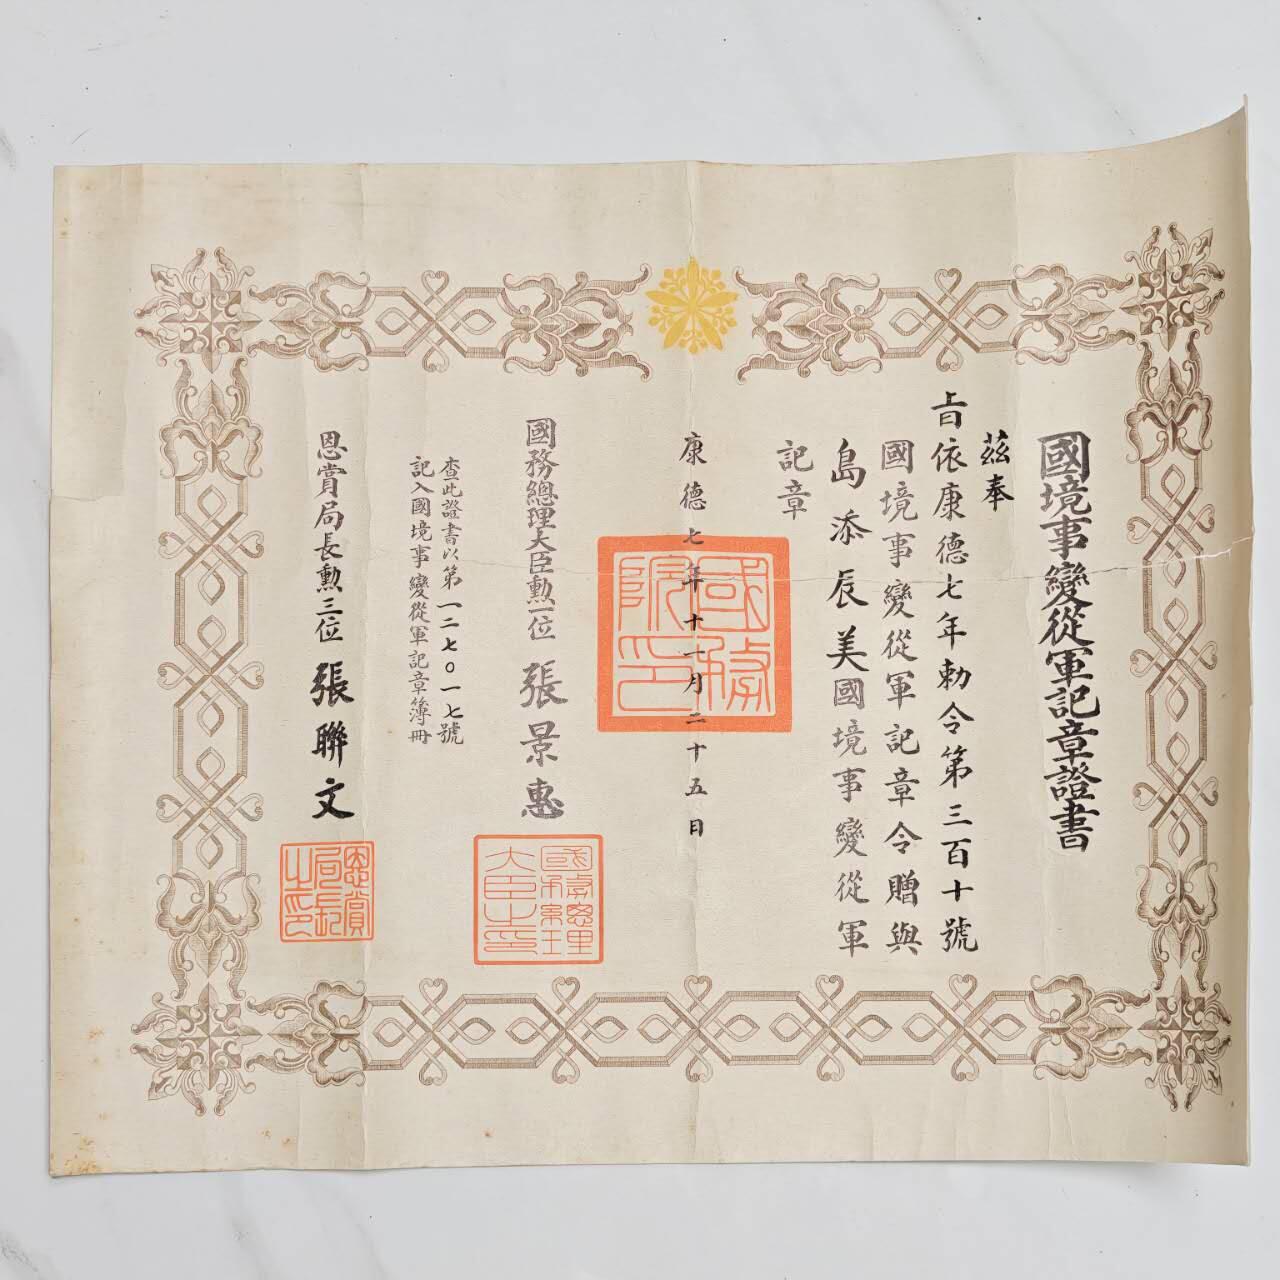 國境事變從軍記章證書
茲奉
上旨依康德七年勅令第三百十號
國境事變從軍記章令贈與
島添辰美國境事變從軍
記章
康德七年十一月二十五日
國務院印
國務總理大臣勲一位 張景惠
國務總理大臣之印
查此證書以第一二七〇一七號
記入國境事變從軍記章簿冊
恩賞局長勲三位 張聯文
恩賞局長之印